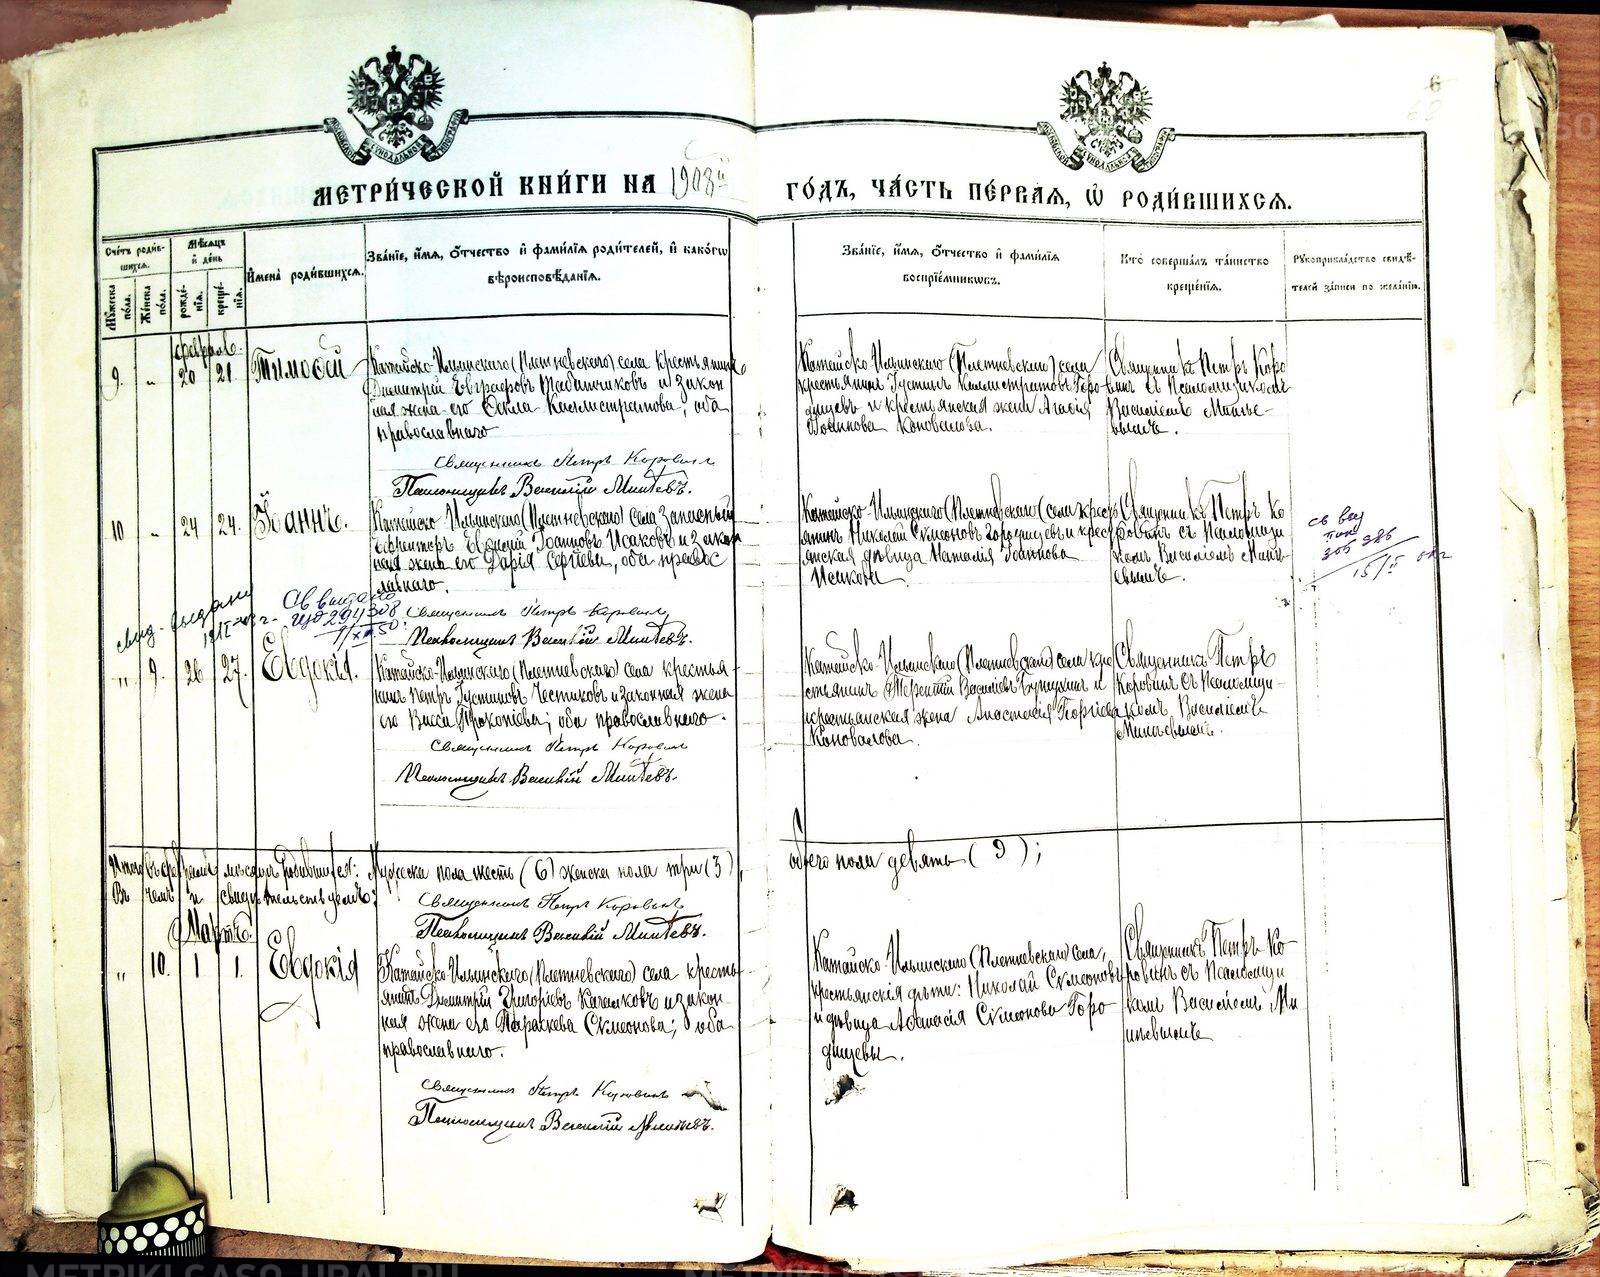 МЕТРИ́ЧЕСКОЙ КНИ́ГИ НА 1908й ГО́ДЪ, ЧА́СТЬ ПЕ́РВАЯ, Ѽ РОДИ́ВШИХСЯ.
6
68
Сче́тъ роди́в-
шихся.
Мѣ́сяцъ
и҆ де́нь
Мꙋ́жеска
по́ла.
Же́нска
по́ла.
рожде́-
нїя.
креще́-
нїя.
И҆мена̀ роди́вшихся.
Зва́нїе, и҆́мя, ѻ҆́тчество и҆ фами́лїя роди́телей, и҆ како́гѡ
вѣроисповѣ́данїя.
Зва́нїе, и҆́мя, ѻ҆́тчество и҆ фами́лїя
воспрїе́мникѡвъ.
Кто̀ соверша́лъ та́инство
креще́нїя.
Рꙋкоприкла́дство свидѣ́-
телей за́писи по жела́нїю.
февраль.
9. „ 20 21 Тимоѳей
Катайско-Ильинскаго (Плетневскаго) села крестьянинъ
Димитрій Евграфовъ Табатчиковъ и закон
ная жена его Ѳекла Каллистратова, оба
православнаго
Священникъ Петръ Коровинъ
Псаломщикъ Василій Минѣевъ.
Катайско-Ильинскаго (Плетневскаго) села
крестьянинъ Іустинъ Каллистратовъ Горо-
дищевъ и крестьянская жена Агаѳія
Коновалова.
Священникъ Петръ Коро
винъ съ Псаломщикомъ
Василіемъ Минѣе-
вымъ.
10 „ 24 24. Іоаннъ.
Катайско-Ильинскаго (Плетневскаго) села запасный
Ефрейторъ Евгеній Іоанновъ Исаковъ и закон
ная жена его Дарія Сергіева, оба правос
лавнаго.
Священникъ Петръ Коровинъ
Псаломщикъ Василій Минѣевъ.
Катайско-Ильинскаго (Плетневскаго) села крест
янинъ Николай Сѵмеоновъ Городищевъ и крест
янская дѣвица Наталія Іоаннова
Исакова
Священникъ Петръ Ко
ровинъ съ Псаломщи
комъ Василіемъ Минѣ-
евымъ.
Св выдано
ЦО 294308
„ 9. 26 27. Евдокія.
Катайско-Ильинскаго (Плетневскаго) села крестья-
нинъ Петръ Іустиновъ Честиковъ и законная жена
его Васса Прокопіева; оба православнаго.
Священникъ Петръ Коровинъ
Псаломщикъ Василій Минѣевъ.
Катайско-Ильинскаго (Плетневскаго) села кре
стьянинъ Терентій Василіевъ и
крестьянская жена Анастасія Георгіева
Коновалова.
Священникъ Петръ
Коровинъ съ Псаломщи-
комъ Василіемъ
Минѣевымъ.
Итого въ февралѣ мѣсяцѣ родившихся: Мужеска пола шесть (6) женска пола три (3), обоего пола девять (9);
Въ чемъ и свидѣтельствуемъ:
Священникъ Петръ Коровинъ
Псаломщикъ Василій Минѣевъ.
Мартъ.
„ 10. 1 1. Евдокія
Катайско-Ильинскаго (Плетневскаго) села кресть
янинъ Димитрій Григоріевъ Качалковъ и закон
ная жена его Параскева Сѵмеонова; оба
православнаго.
Священникъ Петръ Коровинъ
Псаломщикъ Василій Минѣевъ.
Катайско-Ильинскаго (Плетневскаго) села,
крестьянскія дѣти: Николай Сѵмеоновъ
и дѣвица Аѳанасія Сѵмеонова Горо
дищевы.
Священникъ Петръ Ко-
ровинъ съ Псаломщи
комъ Василіемъ Ми
нѣевымъ